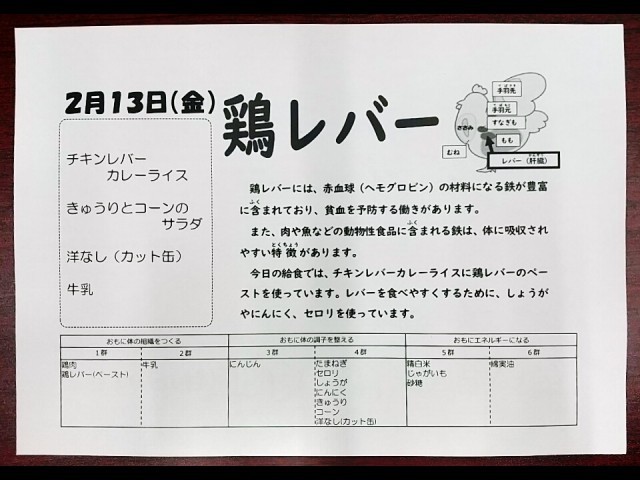 2月13日(金)
鶏レバー
手羽先
手羽元
すなぎも
ささみ
もも
むね
レバー(肝臓)
チキンレバー
カレーライス
きゅうりとコーンの
サラダ
洋なし(カット缶)
牛乳
鶏レバーには、赤血球(ヘモグロビン)の材料になる鉄が豊富
に含まれており、貧血を予防する働きがあります。
また、肉や魚などの動物性食品に含まれる鉄は、体に吸収され
やすい特徴があります。
今日の給食では、チキンレバーカレーライスに鶏レバーのペー
ストを使っています。レバーを食べやすくするために、しょうが
やにんにく、セロリを使っています。
おもに体の組織をつくる おもに体の調子を整える おもにエネルギーになる
1群 2群 3群 4群 5群 6群
鶏肉 牛乳 にんじん たまねぎ 精白米 綿実油
鶏レバー(ペースト) セロリ じゃがいも
しょうが 砂糖
にんにく
きゅうり
コーン
洋なし(カット缶)